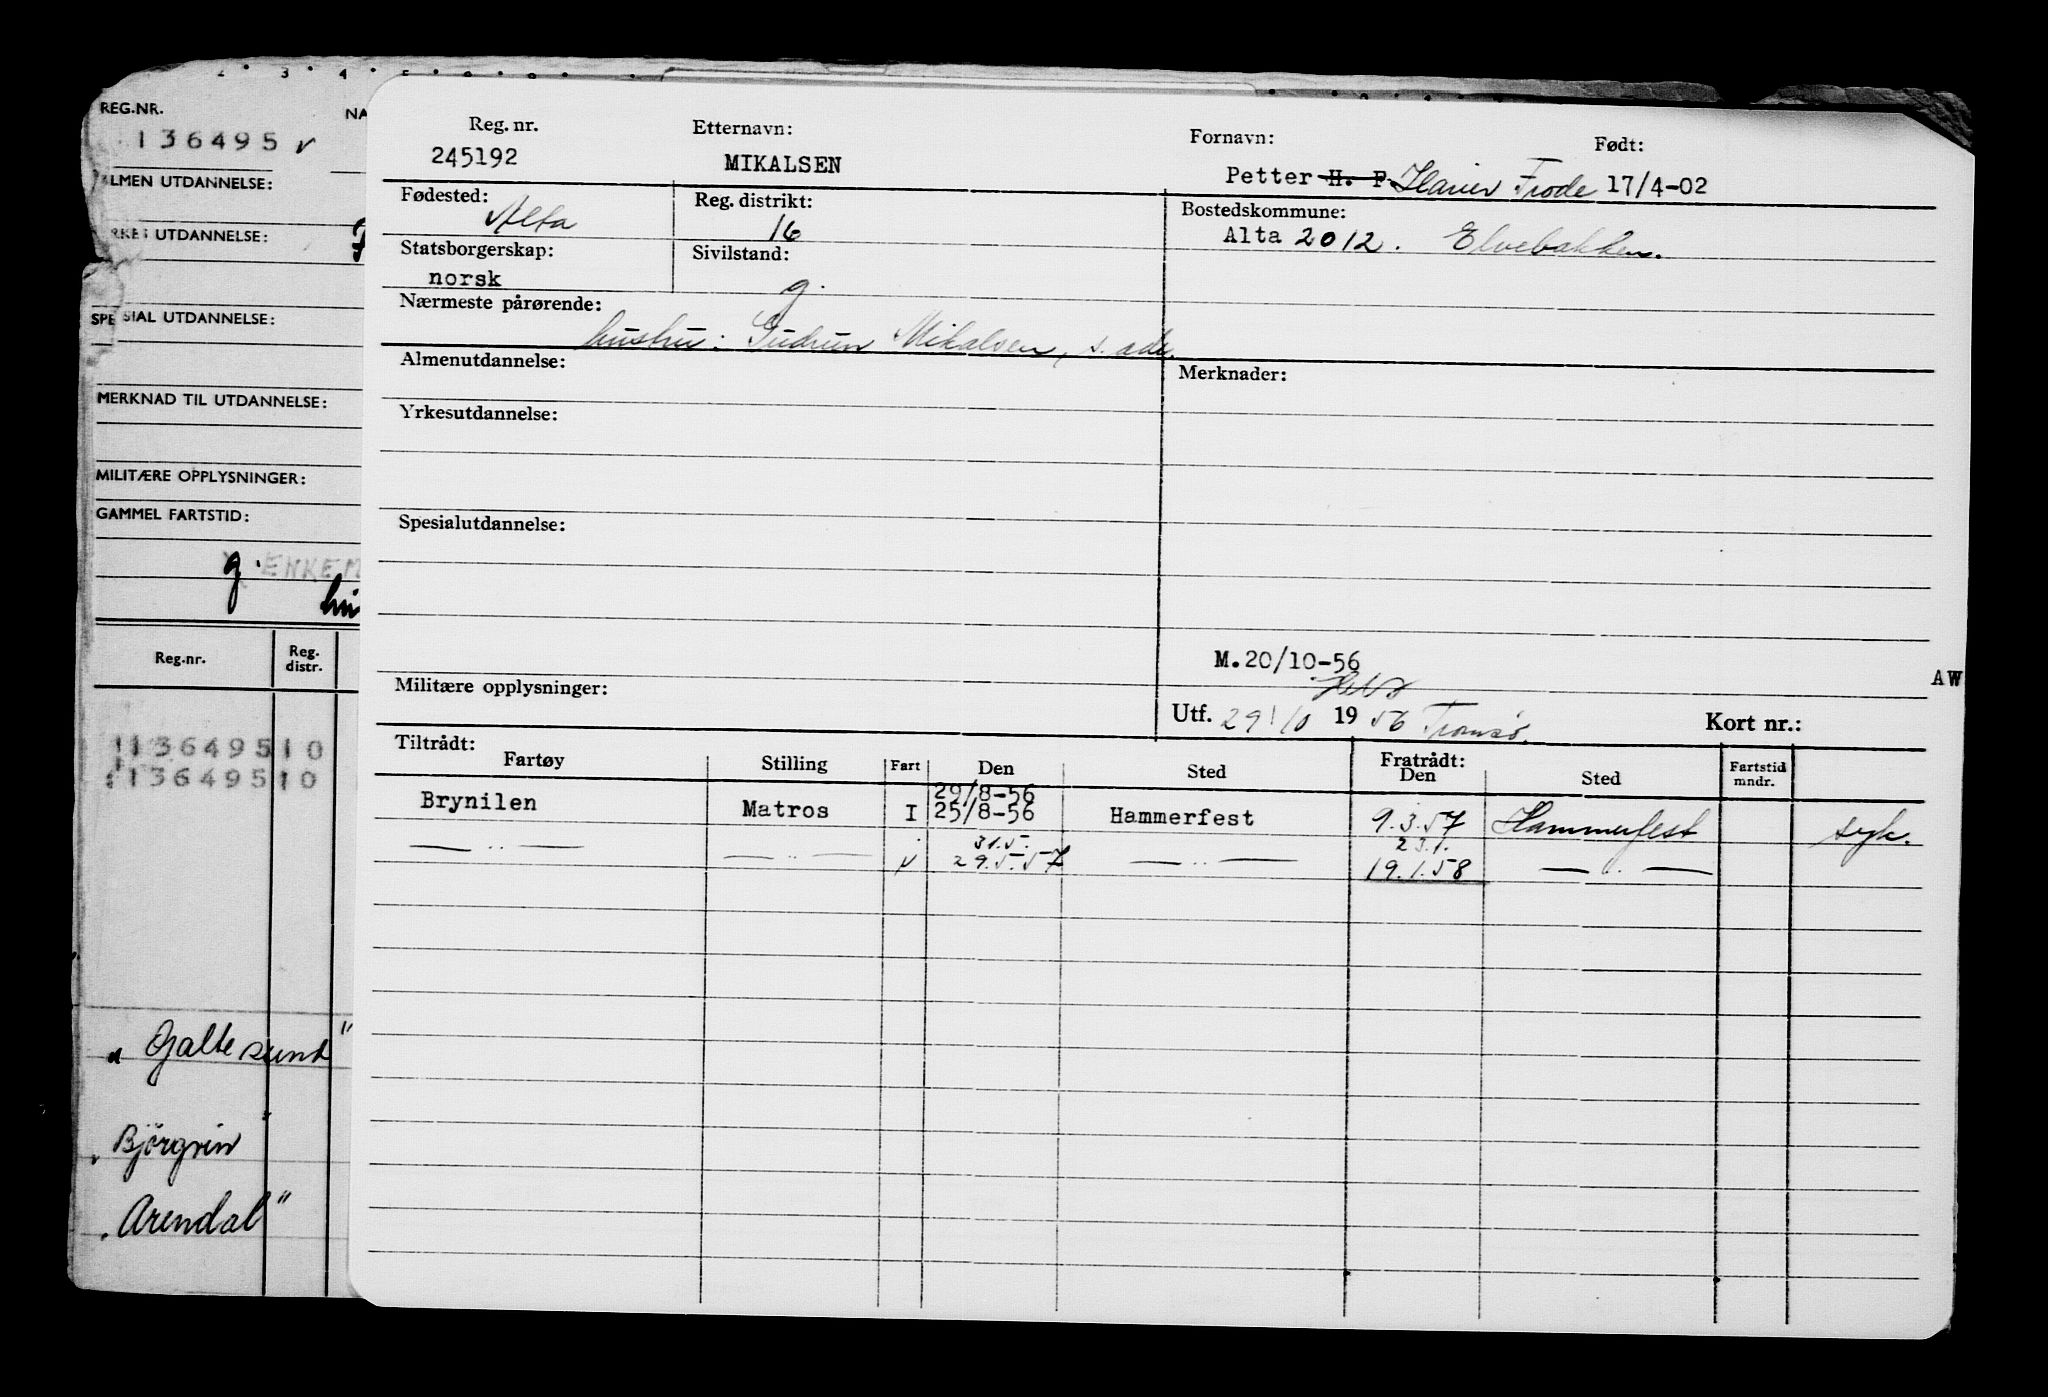 2 · 3 · 4 · 5
REG.NR.
NA
136495 v
ALMEN UTDANNELSE:
UTDANNELSE:
SPESIAL UTDANNELSE:
MERKNAD TIL UTDANNELSE:
MILITÆRE OPPLYSNINGER:
GAMMEL FARTSTID:
g. ENKEM
hu
Reg.nr. Reg. distr.
136495 10
136495 10
„Galtesund"
Björgvin
„Arendal"
Reg. nr. Etternavn: Fornavn: Født:
245192 MIKALSEN Petter H. F. Frode 17/4-02
Fødested: Reg. distrikt: Bostedskommune:
Alta 16 Alta 2012. Elvebakken.
Statsborgerskap: Sivilstand:
norsk g.
Nærmeste pårørende:
hustru: Gudrun Mikalsen, s. adr.
Almenutdannelse: Merknader:
Yrkesutdannelse:
Spesialutdannelse:
M.20/10-56
AW
Militære opplysninger:
Utf. 29/10 1956 Tromsø. Kort nr.:
Tiltrådt: Fratrådt:
Fartøy Stilling Fart Den Sted Den Sted Fartstid mndr.
29/8-56
Brynilen Matros I 25/8-56 Hammerfest 9.3.57 Hammerfest syk.
31.5. 23.1.
— " — — " — 29.5.57 — " — 19.1.58 — " —